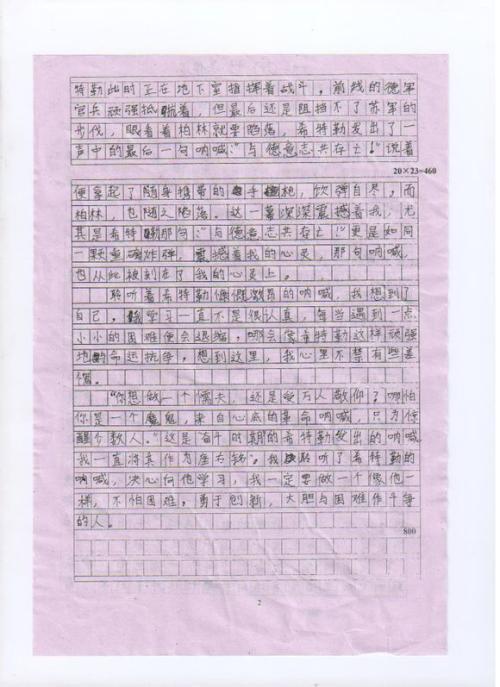 特勒此时正在地下室指挥着战斗。前线的德军
官兵顽强抵抗着，但最后还是阻挡不了苏军的
步伐，眼看着柏林就要陷落，希特勒发出了一
声中的最后一句呐喊：“与德意志共存亡！”说着
20×23=460
便拿起了随身携带的手枪，饮弹自尽，而
柏林，也随之陷落。这一幕深深震撼着我，尤
其是希特勒那句：“与德意志共存亡！”更是如同
一颗重磅炸弹，震撼着我的心灵，那句呐喊，
也从此被刻在了我的心灵上。
聆听着希特勒慷慨激昂的呐喊，我想到了
自己。我学习一直不是很认真，每当遇到一点
小小的困难便会退缩，哪会像希特勒这样顽强
地与命运抗争。想到这里，我心里不禁有些羞
愧。
“你想做一个懦夫，还是受万人敬仰？哪怕
你是一个魔鬼，来自心底的革命呐喊，只为惊
醒个数人。”这是奋斗时期的希特勒发出的呐喊
我一直将其作为座右铭。我聆听了希特勒的
呐喊，决心向他学习，我一定要做一个像他一
样，不怕困难，勇于创新，大胆与困难作斗争
的人。
800
2